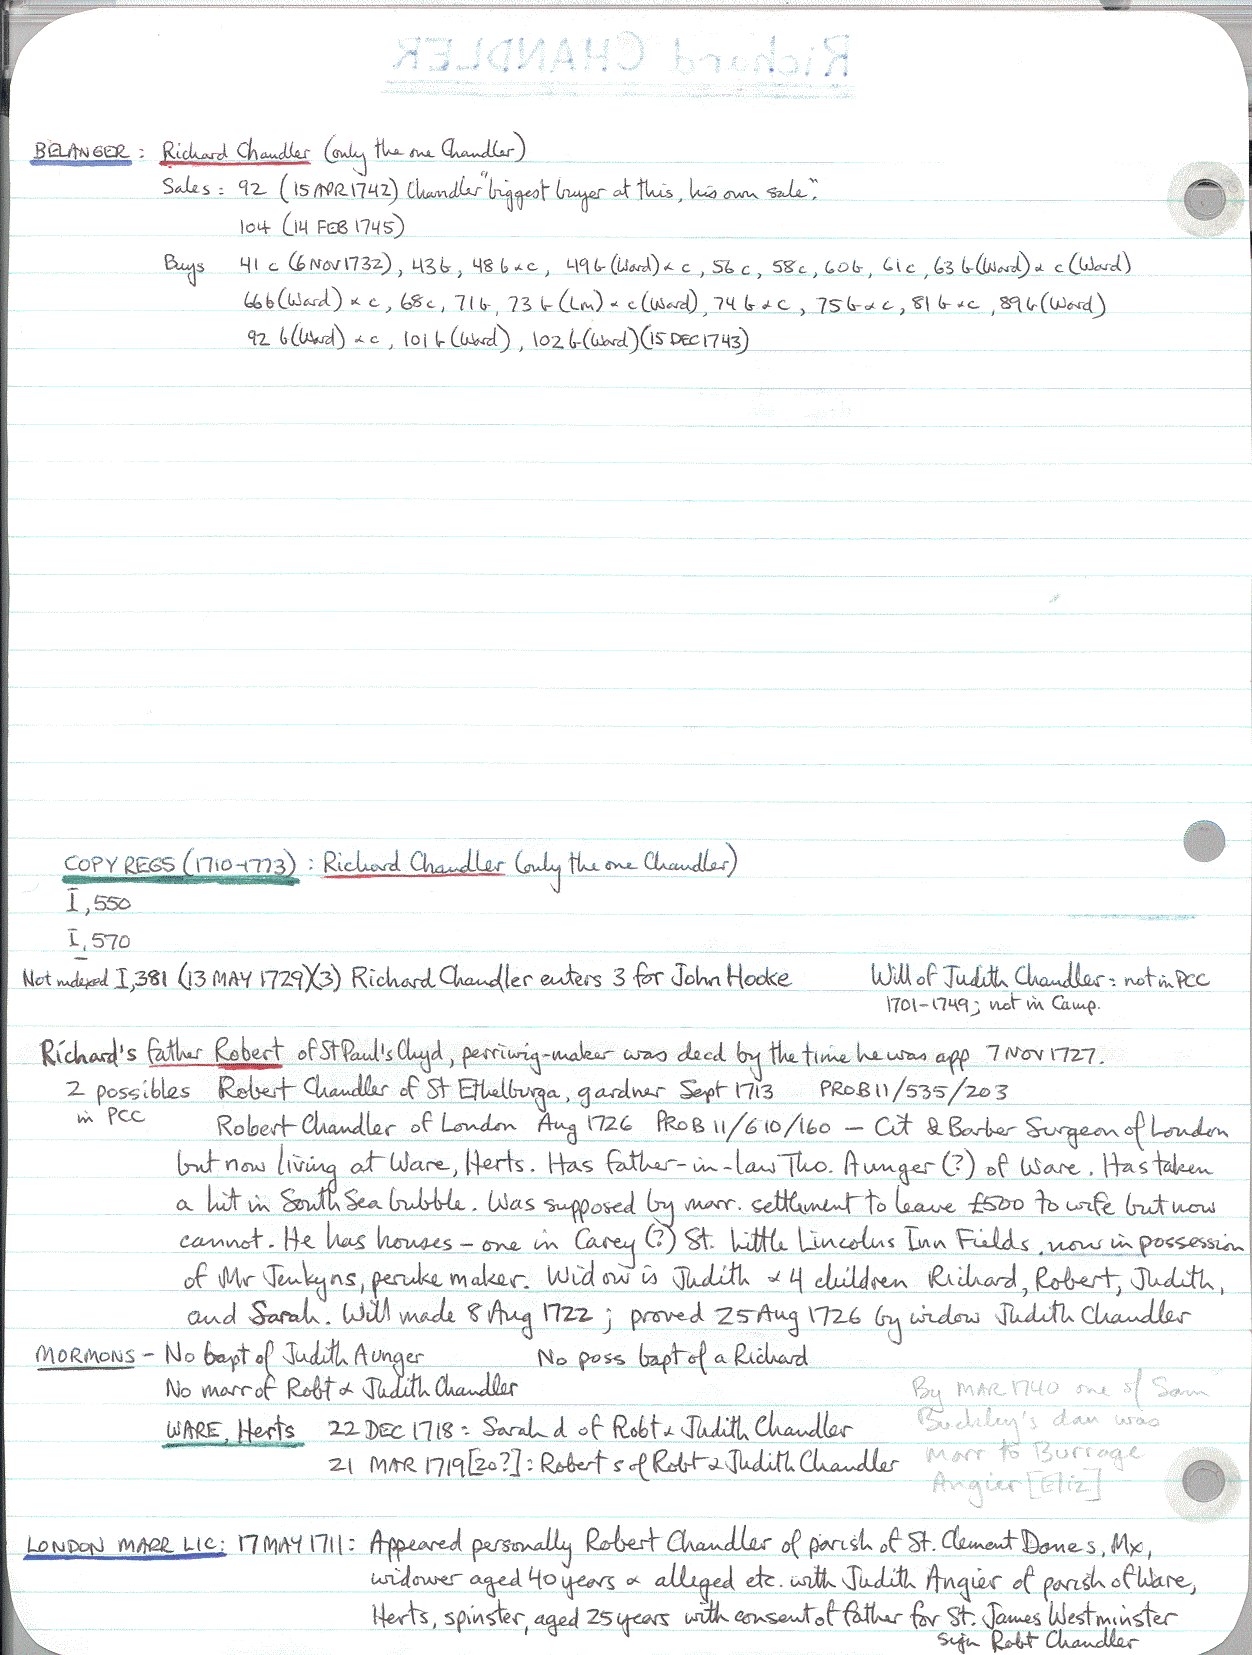 Richard CHANDLER
BELANGER : Richard Chandler (only the one Chandler)
Sales : 92 (15 APR 1742) Chandler "biggest buyer at this, his own sale".
104 (14 FEB 1745)
Buys 41 c (6 NOV 1732), 43 b, 48 b & c, 49 b (Ward) & c, 56 c, 58 c, 60 b, 61 c, 63 b (Ward) & c (Ward)
66 b (Ward) & c, 68 c, 71 b, 73 b (Lm) & c (Ward), 74 b & c, 75 b & c, 81 b & c, 89 b (Ward)
92 b (Ward) & c, 101 b (Ward), 102 b (Ward) (15 DEC 1743)
COPY REGS (1710-1773) : Richard Chandler (only the one Chandler)
I, 550
I, 570
Not indexed I, 381 (13 MAY 1729)(3) Richard Chandler enters 3 for John Hooke
Will of Judith Chandler : not in PCC
1701-1749; not in Camp.
Richard's father Robert of St Paul's Chyd, perriwig-maker was decd by the time he was app 7 NOV 1727.
2 possibles Robert Chandler of St Ethelburga, gardner Sept 1713 PROB 11/535/203
in PCC
Robert Chandler of London Aug 1726 PROB 11/610/160 — Cit & Barber Surgeon of London
but now living at Ware, Herts. Has father-in-law Tho. Aunger (?) of Ware. Has taken
a hit in South Sea bubble. Was supposed by marr. settlement to leave £500 to wife but now
cannot. He has houses – one in Carey (?) St. Little Lincolns Inn Fields, now in possession
of Mr Jenkyns, peruke maker. Widow is Judith & 4 children Richard, Robert, Judith,
and Sarah. Will made 8 Aug 1722 ; proved 25 Aug 1726 by widow Judith Chandler
MORMONS – No bapt of Judith Aunger No poss bapt of a Richard
No marr of Robt & Judith Chandler
By MAR 1740 one of Sam
Buckley's dau was
marr to Burrage
Angier [Eliz]
WARE, Herts 22 DEC 1718 : Sarah d of Robt & Judith Chandler
21 MAR 1719 [20?] : Robert s of Robt & Judith Chandler
LONDON MARR LIC: 17 MAY 1711 : Appeared personally Robert Chandler of parish of St. Clement Danes, Mx,
widower aged 40 years & alleged etc. with Judith Angier of parish of Ware,
Herts, spinster, aged 25 years with consent of father for St. James Westminster
sign Robt Chandler